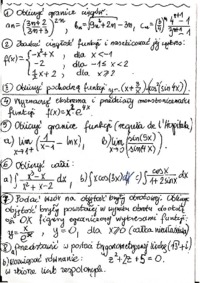 ① Obliczyć granice ciągów:
an = (3n+2 / 3n+3)^2n, bn = √9n²+2n - 3n, cn =
② Zbadać ciągłość funkcji i naszkicować jej wykres:
f(x) = { -x²+x dla x<-1
-2 dla -1≤x<2
½x+2 dla x≥2
③ Obliczyć pochodną funkcji y=
④ Wyznaczyć ekstrema i przedziały monotoniczności
funkcji f(x) = x²e
⑤ Obliczyć granice funkcji (reguła de l'Hospitala)
a) lim x→1 b) lim x→0 (sin(5x) / sin(4x))
⑥ Obliczyć całki:
a) ∫ dx b) ∫x cos(3x)dx c) ∫ cosx / √1+2sinx dx
⑦ Podać wzór na objętość bryły obrotowej. Oblicz
objętość bryły powstałej w wyniku obrotu dookoła
osi OX figury ograniczonej wykresami funkcji:
y = , y=0, dla x≥0 (całka niewłaściwa)
⑧ a) Przedstawić w postaci trygonometrycznej liczbę
b) Rozwiązać równanie: z²+2z+5=0.
w zbiorze liczb zespolonych.